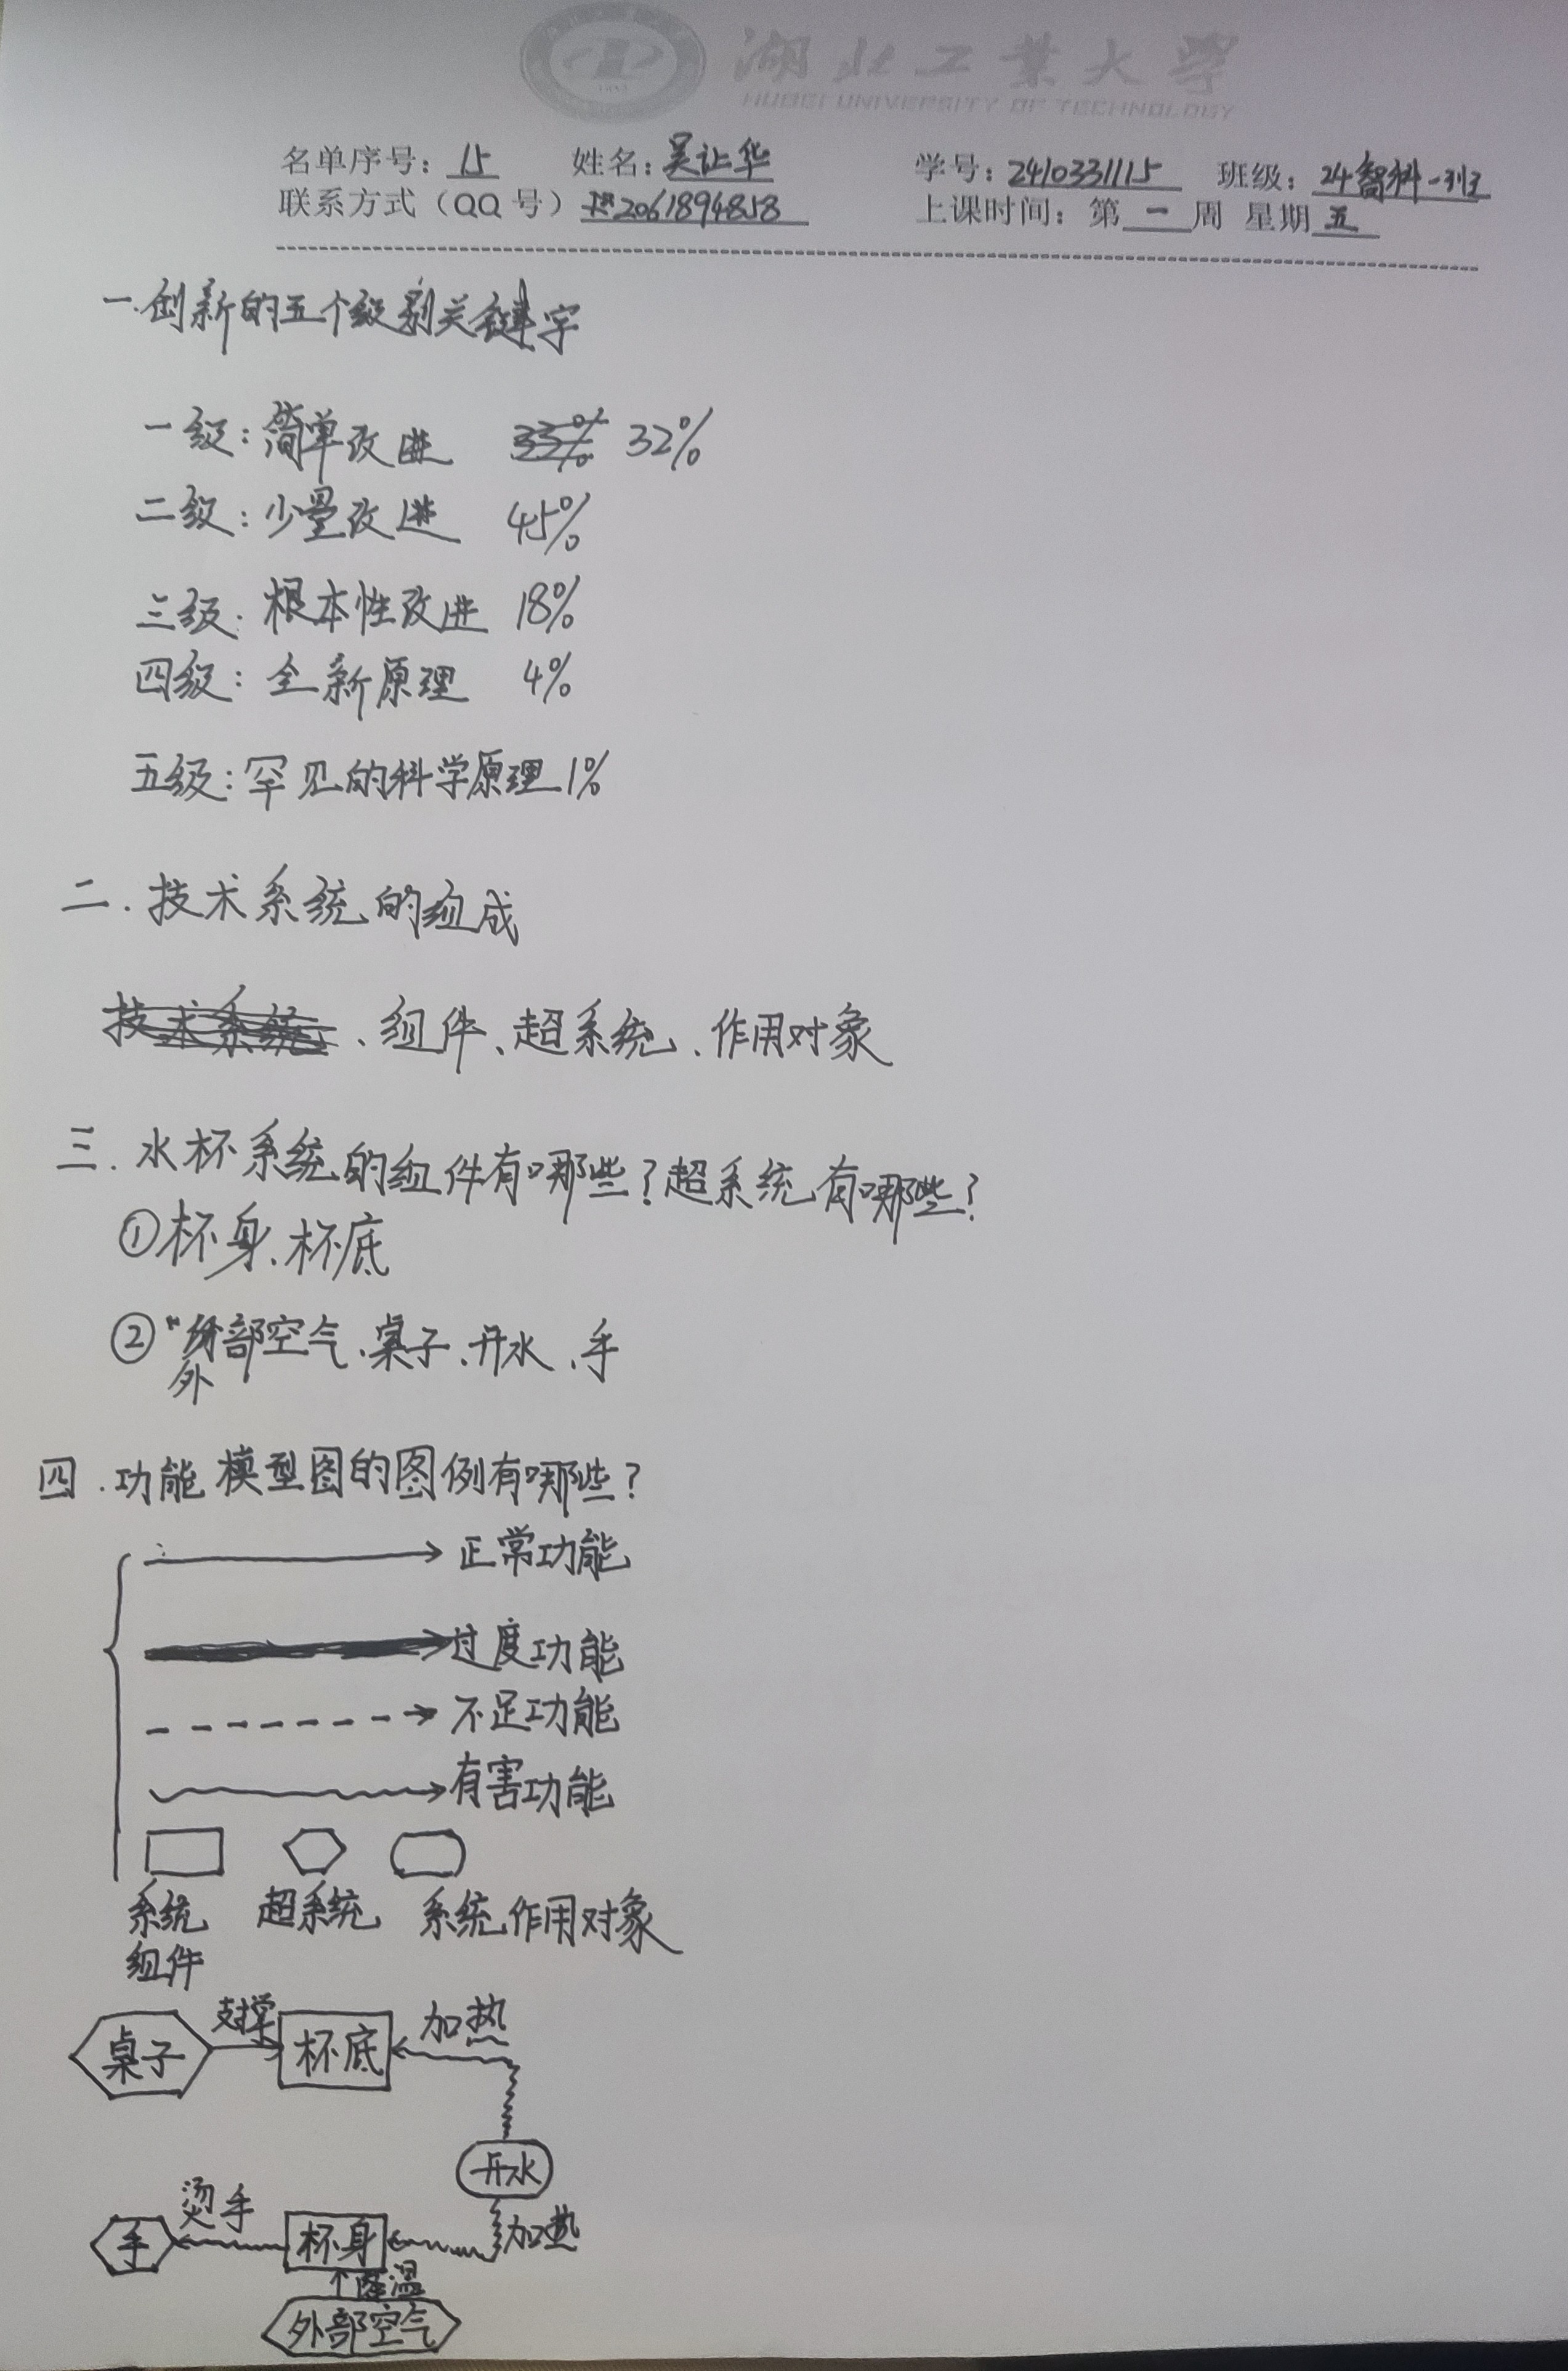 湖北工业大学
HUBEI UNIVERSITY OF TECHNOLOGY
名单序号：15 姓名：吴让华 学号：2410331115 班级：24智科一班
联系方式（QQ 号）2061894858 上课时间：第一周 星期五
一.创新的五个级别关键字
一级：简单改进 33% 32%
二级：少量改进 45%
三级：根本性改进 18%
四级：全新原理 4%
五级：罕见的科学原理 1%
二.技术系统的组成
技术系统、组件、超系统、作用对象
三.水杯系统的组件有哪些？超系统有哪些？
①杯身、杯底
②外部空气、桌子、开水、手
四.功能模型图的图例有哪些？
正常功能
过度功能
不足功能
有害功能
系统组件 超系统 系统作用对象
桌子 支撑 杯底 加热
开水
手 烫手 杯身 加热
降温
外部空气